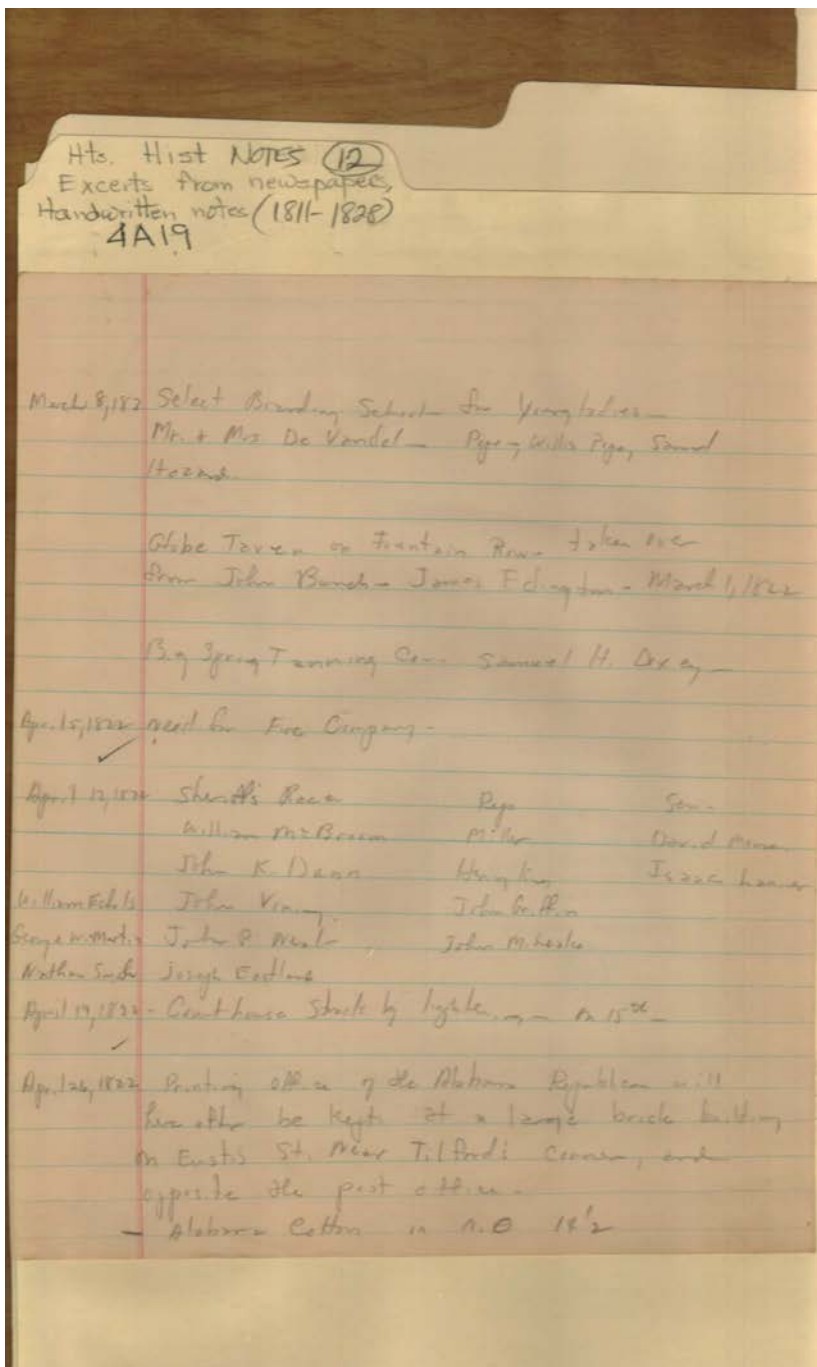 Hts. Hist NOTES (12)
Excerts from newspapers,
Handwritten notes (1811-1828)
4A19
March 8, 182 Select Boarding School for Young ladies -
Mr. + Mrs. De Vandel - Pope, Willis Pope, Samuel
Hazard.
Globe Tavern on Fountain Row - taken over
from John Bunch - James Edington - March 1, 1822
Big Spring Tanning Co. - Samuel H.
Apr. 15, 1822 need for Fire Company -
April 12, 1822 Sheriff's Race Reps Sen.
William McBroom Miller David Moore
John K. Dunn Henry King Isaac Lanier
William Echols John Vining John Griffin
George W. Martin John P. Neal John M. Leake
Nathan Smith Joseph Eastland
April 19, 1822 - Courthouse Struck by lightening - on 15th -
Apr. 26, 1822 Printing office of the Alabama Republican will
hereafter be kept at a large brick building
on Eustis St. near Tilford's Corner, and
opposite the post office -
- Alabama Cotton in N.O